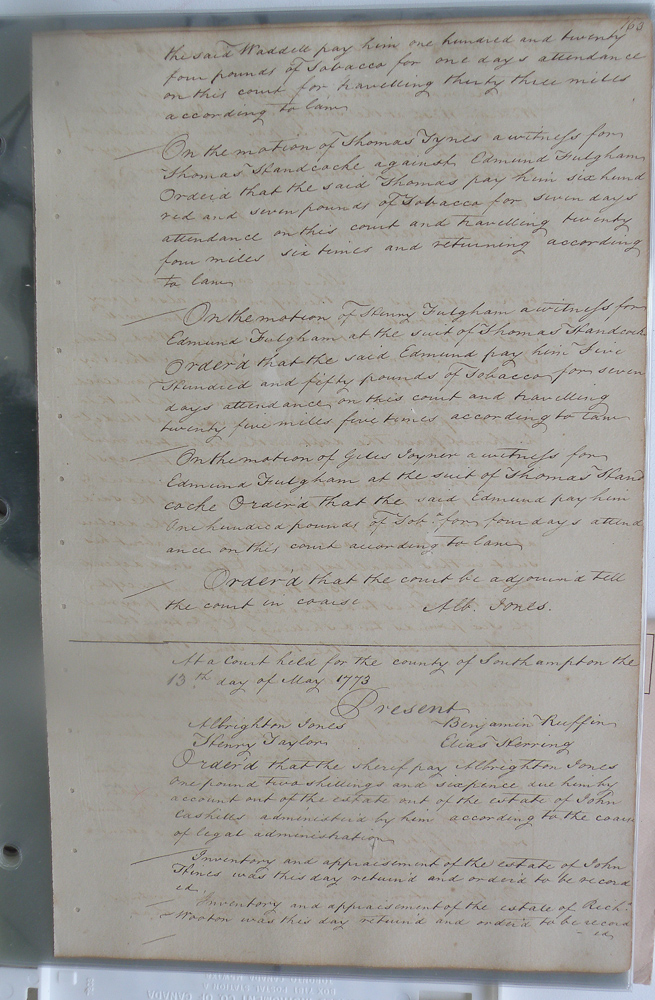 163
the said Waddell pay him one hundred and twenty
four pounds of Tobacco for one days attendance
on this court for travelling thirty three miles
according to law
On the motion of Thomas Tynes a witness for
Thomas Handcocke against Edmund Fulgham
Order'd that the said Thomas pay him six hund
red and seven pounds of Tobacco for seven days
attendance on this court and travelling twenty
four miles six times and returning according
to law
On the motion of Henry Fulgham a witness for
Edmund Fulgham at the suit of Thomas Handcock
Order'd that the said Edmund pay him Five
Hundred and fifty pounds of Tobacco for seven
days attendance on this court and travelling
twenty five miles five times according to law
On the motion of Giles Joyner a witness for
Edmund Fulgham at the suit of Thomas Hand
cocke Order'd that the said Edmund pay him
One hundred pounds of Tobo for four days attend
ance on this court according to law
Order'd that the court be adjourn'd till
the court in course Alb. Jones.
At a Court held for the county of Southampton the
13th day of May 1773
Present
Albrighton Jones Benjamin Ruffin
Henry Taylor Elias Herring
Order'd that the sherif pay Albrighton Jones
one pound two shillings and sixpence due him by
account out of the estate out of the estate of John
administer'd by him according to the course
of legal administration
Inventory and appraisement of the estate of John
Hines was this day return'd and order'd to be record
ed.
Inventory and appraisement of the estate of Richd
Wooton was this day return'd and order'd to be record
ed